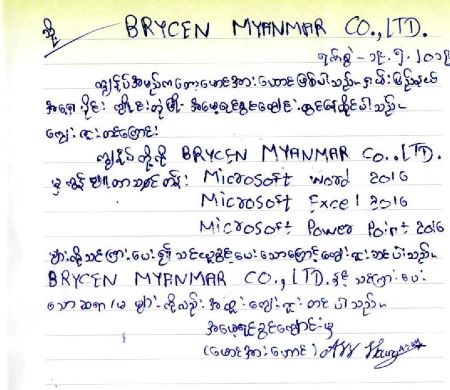 သို့ BRYCEN MYANMAR CO.,LTD.
ရက်စွဲ - ၁၉.၅.၂၀၁၉
ကျွန်ုပ်အမည်ကတော့မောင်အားဟောင်ဖြစ်ပါသည်။ ရှမ်းပြည်နယ်
အရှေ့ပိုင်း ကျိုင်းတုံမြို့ အမေ့ရင်ခွင်ကျောင်းတွင်နေထိုင်ပါသည်။
ကျေးဇူးတင်ကြောင်း
ကျွန်ုပ်တို့ကို BRYCEN MYANMAR CO.,LTD.
မှ ကွန်ပျူတာသင်တန်း Microsoft word 2016
Microsoft Excel 2016
Microsoft Power Point 2016
များကိုသင်ကြားပေး၍ သင်ယူခွင့်ပေးသောကြောင့်ကျေးဇူးတင်ပါသည်။
BRYCEN MYANMAR CO.,LTD. နှင့် သင်ကြားပေး
သောဆရာ/မ များကိုလည်း အထူးကျေးဇူးတင်ပါသည်။
အမေ့ရင်ခွင်ကျောင်းမှ
(မောင်အားဟောင်)